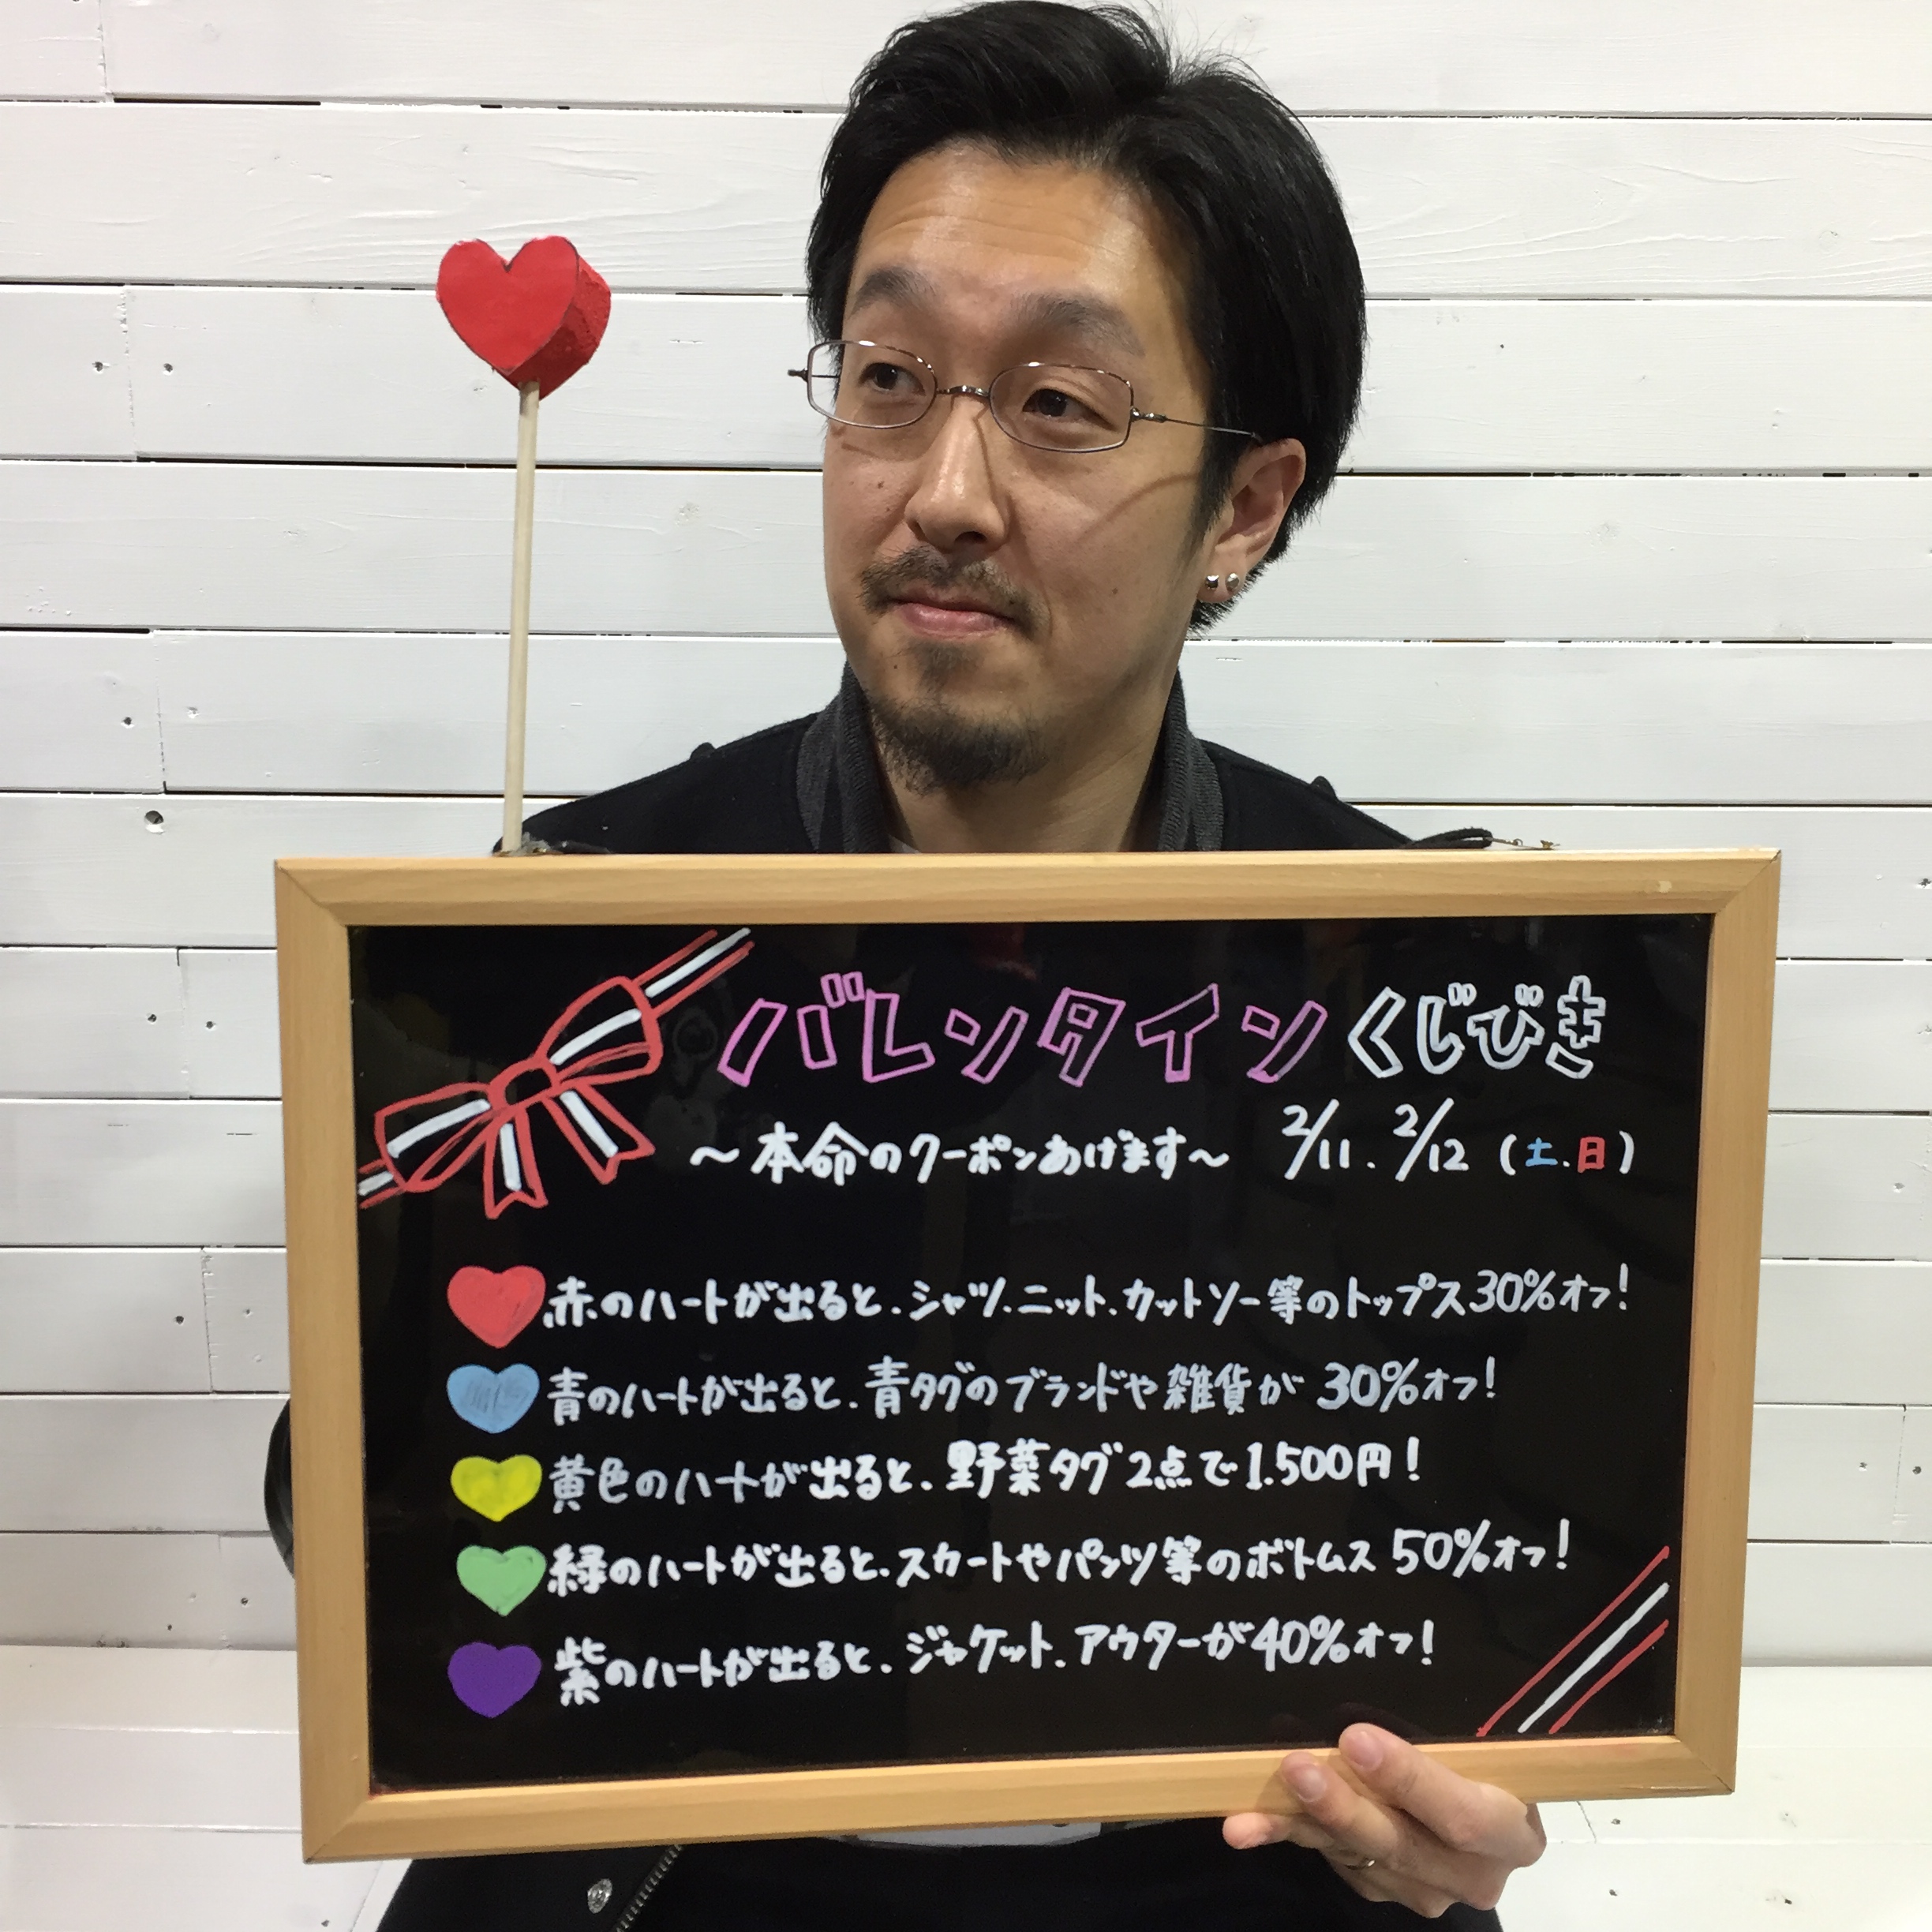 バレンタインくじびき
〜本命のクーポンあげます〜 2/11.2/12 (土.日)
赤のハートが出ると、シャツ、ニット、カットソー等のトップス30%オフ!
青のハートが出ると、青タグのブランドや雑貨が30%オフ!
黄色のハートが出ると、野菜タグ2点で1.500円!
緑のハートが出ると、スカートやパンツ等のボトムス50%オフ!
紫のハートが出ると、ジャケット、アウターが40%オフ!